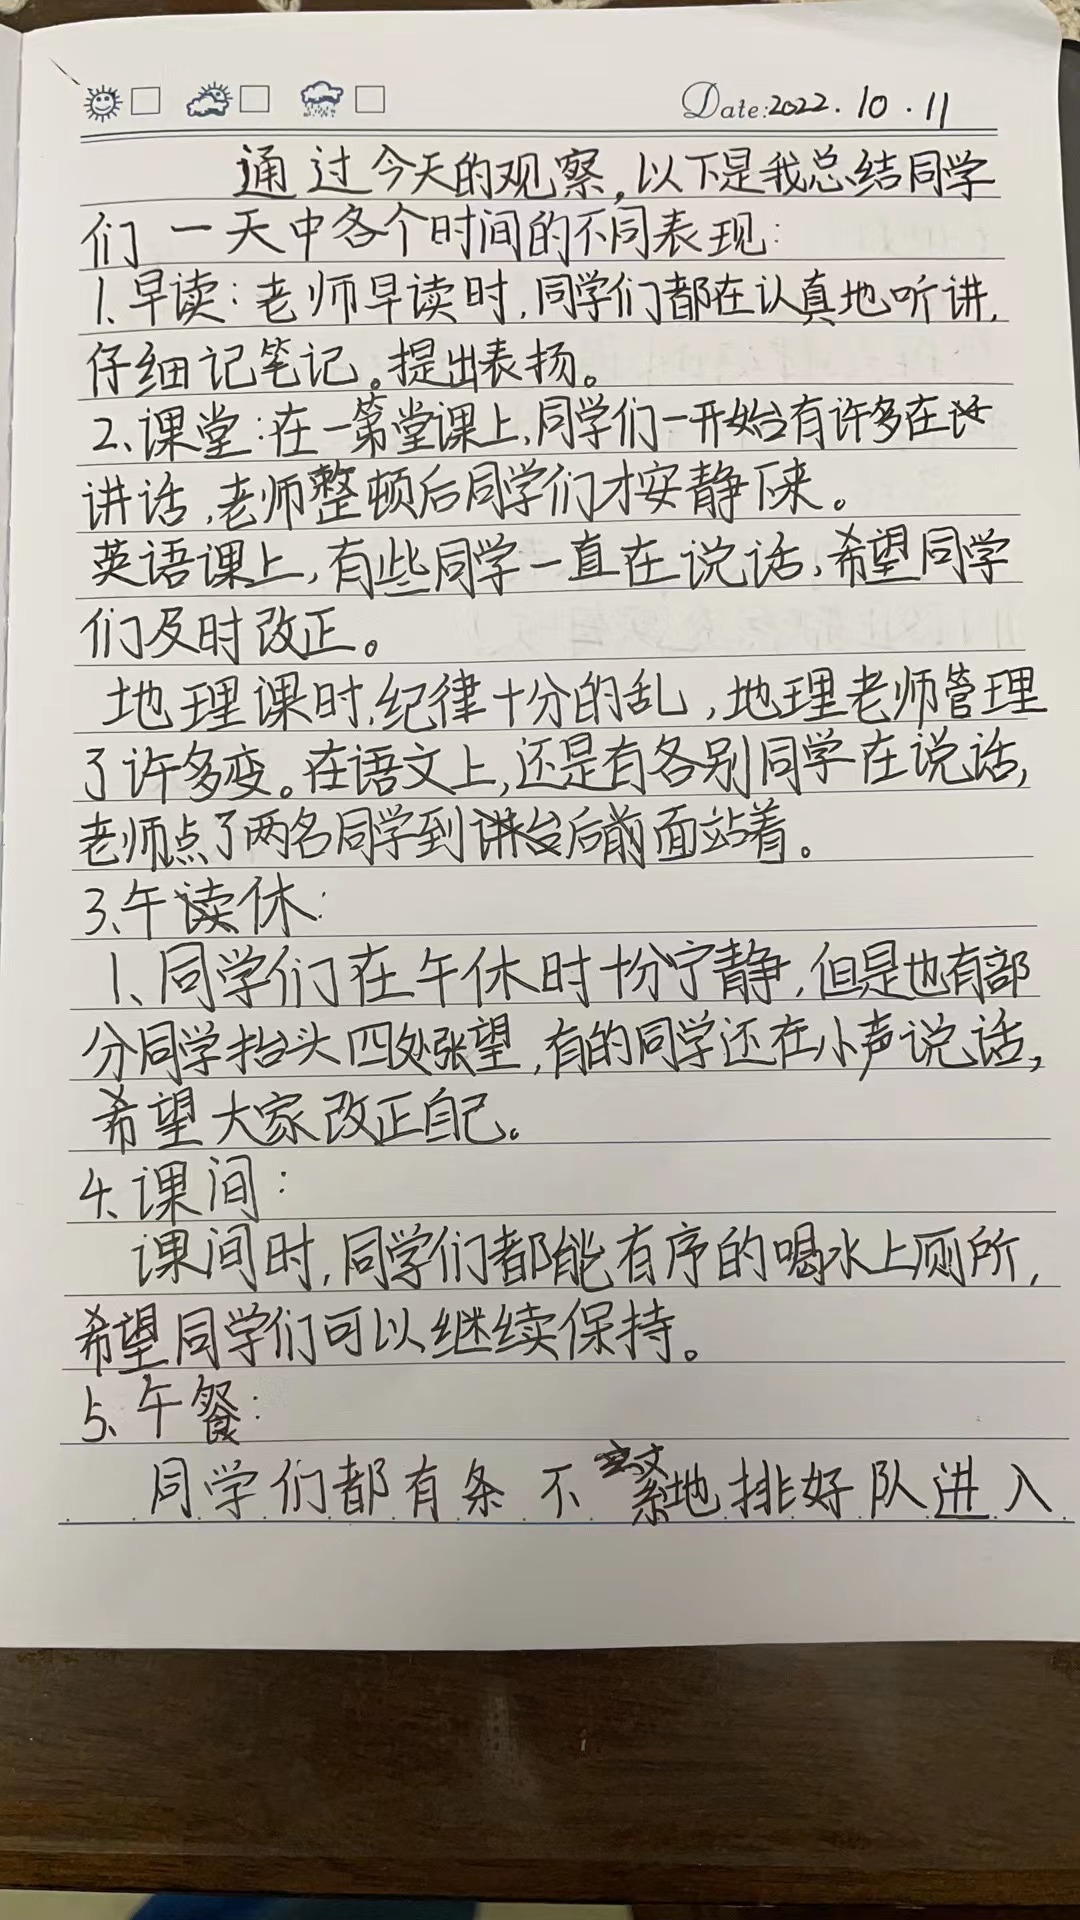 Date:2022.10.11
通过今天的观察,以下是我总结同学
们一天中各个时间的不同表现:
1.早读:老师早读时,同学们都在认真地听讲,
仔细记笔记。提出表扬。
2、课堂:在一第堂课上,同学们一开始台有许多在
讲话,老师整顿后同学们才安静下来。
英语课上,有些同学一直在说话,希望同学
们及时改正。
地理课时,纪律十分的乱,地理老师管理
了许多变。在语文上,还是有各别同学在说话,
老师点了两名同学到后前面站着。
3、午休:
1、同学们在午休时十分宁静,但是也有部
分同学抬头四处张望,有的同学还在小声说话,
希望大家改正自己。
4、课间:
课间时,同学们都能有序的喝水上厕所,
希望同学们可以继续保持。
5、午餐:
同学们都有条不紊地排好队进入